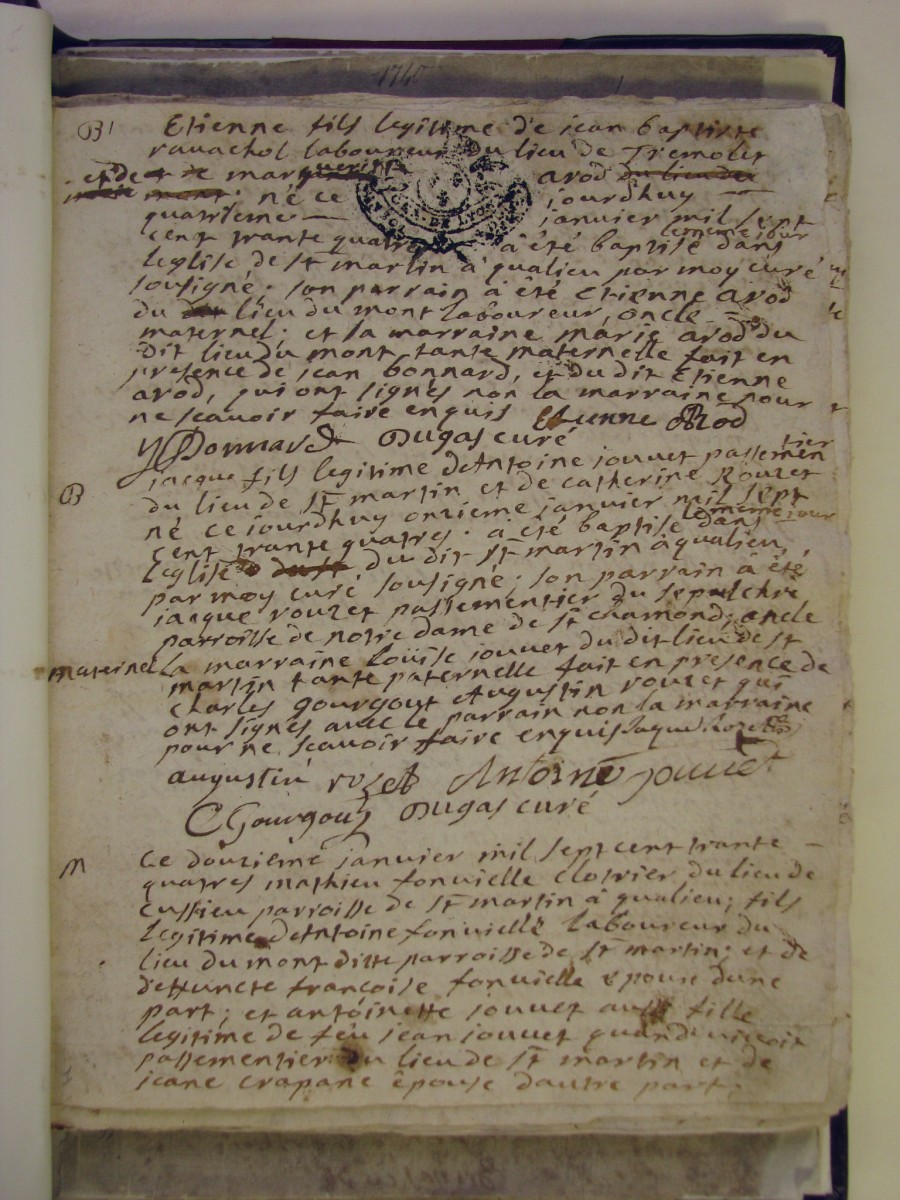 1740
B
Etienne fils legitime de jean baptiste
ravachol laboureur du lieu de Tremolet
et de marguerite arod
né ce jourdhuy
quatrieme janvier mil sept
cent trante quatre à été baptisé le meme jour dans
leglise de st martin à qualieu par moy curé
sousigné. son parrain à été Etienne arod
du lieu du mont laboureur, oncle
maternel; et la marraine marie arod du
dit lieu du mont, tante maternelle fait en
presence de jean bonnard, et du dit Etienne
arod, qui ont signés non la marraine pour
ne scavoir faire enquis Etienne Arod
J Bonnard Dugas curé
B
jacque fils legitime dAntoine jouvet passementier
du lieu de st martin et de catherine Rouzet
né ce jourdhuy onzieme janvier mil sept
cent trante quatres. à été baptisé le meme jour dans
leglise du dit st martin à qualieu
par moy curé sousigné; son parrain à été
jacque rouzet passementier du sepulchre
parroisse de notre dame de st chamond; oncle
maternel la marraine loüise jouvet du dit lieu de st
martin tante paternelle fait en presence de
charles gourgout et Augustin rouzet qui
ont signés avec le parrain non la marraine
pour ne scavoir faire enquis jaque Rozet
augustin rozet Antoine jouvet
C Gourgout Dugas curé
M
Ce douzieme janvier mil sept cent trante
quatres mathieu fonvielle clotrier du lieu de
cussieu parroisse de st martin à qualieu; fils
legitime dAntoine fonvielle laboureur du
lieu du mont ditte parroisse de st martin; et de
deffuncte françoise fonvielle epouse dune
part; et antoinette jouvet aussi fille
legitime de feu jean jouvet quand vivoit
passementier du lieu de st martin et de
jeane crapane épouse dautre part;